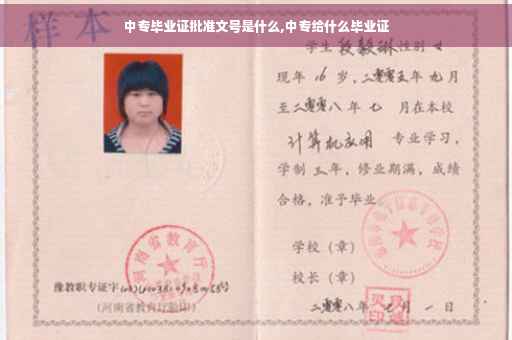 样本
中专毕业证批准文号是什么,中专给什么毕业证
学生 段毅琳 性别 女
现年 16 岁，二零零五年 九 月
至二零零八 年 七 月在本校
计算机应用 专业学习，
学制 三 年，修业期满，成绩
合格，准予毕业。
学校（章）
校长（章）
二零零八年 七 月 一 日
豫教职专证字
（河南省教育厅验印）
河南省教育厅